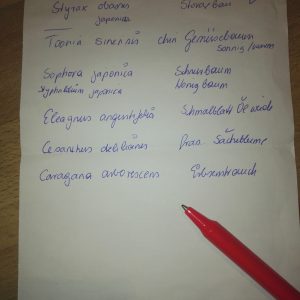 Styrax obassia Storaxbaum
japonica
Toona sinensis chin Gemüsebaum
sonnig/warm
Sophora japonica Schnurbaum
Styphnolobium japonica Honigbaum
Eleagnus angustifolia Schmalblatt Ölweide
Ceanothus delilianus Säckelblume
Caragana arborescens Erbsenstrauch